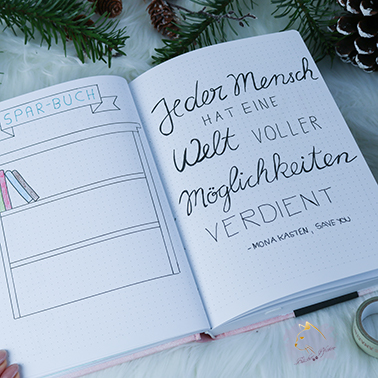 SPAR-BUCH
Jeder Mensch
HAT EINE
Welt VOLLER
Möglichkeiten
VERDIENT
- MONA KASTEN, SAVE YOU